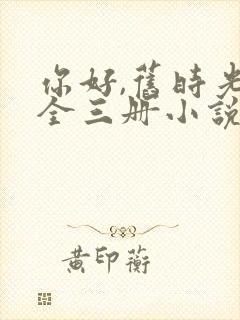 你好,舊時光
全三册小說
黄印蘅